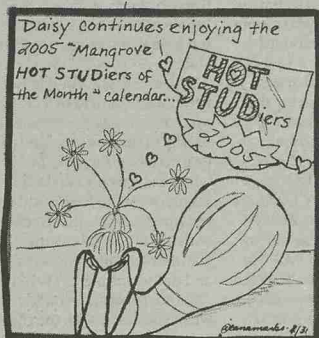 Daisy continues enjoying the
2005 "Mangrove
HOT STUDiers of
the Month" calendar...
HOT
STUDiers
2005
8/31